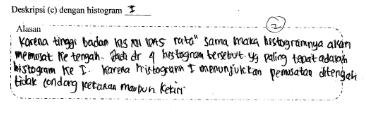 Deskripsi (c) dengan histogram I
2
Alasan
Karena tinggi badan kls XII IPAS rata" sama maka histogramnya akan
memusat ke tengah. Jadi dr 4 histogram tersebut yg paling tepat adalah
histogram ke I. Karena histogram I menunjukkan pemusatan ditengah
tidak condong kekanan maupun kekiri